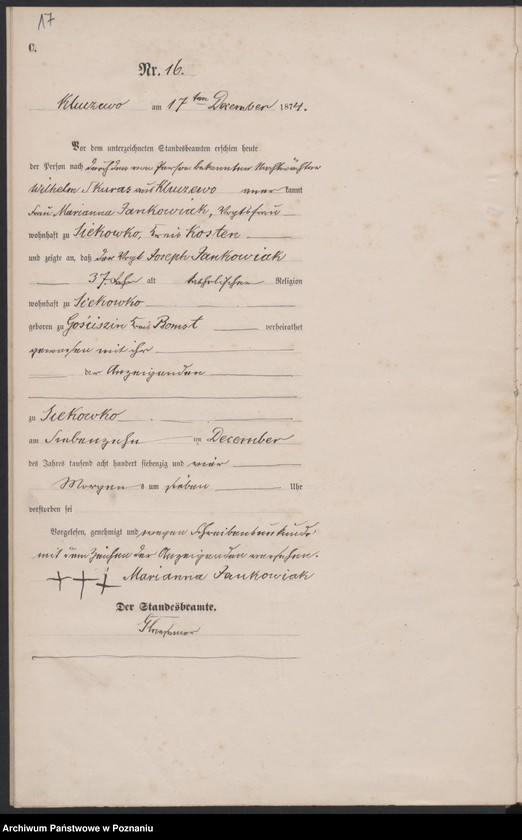 17
C.
Nr. 16.
Kluczewo am 17ten December 1874.
Vor dem unterzeichneten Standesbeamten erschien heute
der Person nach durch den von Person bekannten Nachtwächter
Wilhelm Skuras aus Kluczewo aner kannt
Frau Marianna Jankowiak, Vogtsfrau
wohnhaft zu Siekowko, Kreis Kosten
und zeigte an, daß der Vogt Joseph Jankowiak
37 Jahr alt katholischer Religion
wohnhaft zu Siekowko
geboren zu Gościszin Kreis Bomst verheirathet
gewesen mit ihr
der Anzeigenden
zu Siekowko
am Siebenzehn ten December
des Jahres tausend acht hundert siebenzig und vier
Morgen s um sieben Uhr
verstorben sei
Vorgelesen, genehmigt und wegen Schreibensunkunde
mit dem Zeichen der Anzeigenden versehen.
+++ Marianna Jankowiak
Der Standesbeamte.
Archiwum Państwowe w Poznaniu